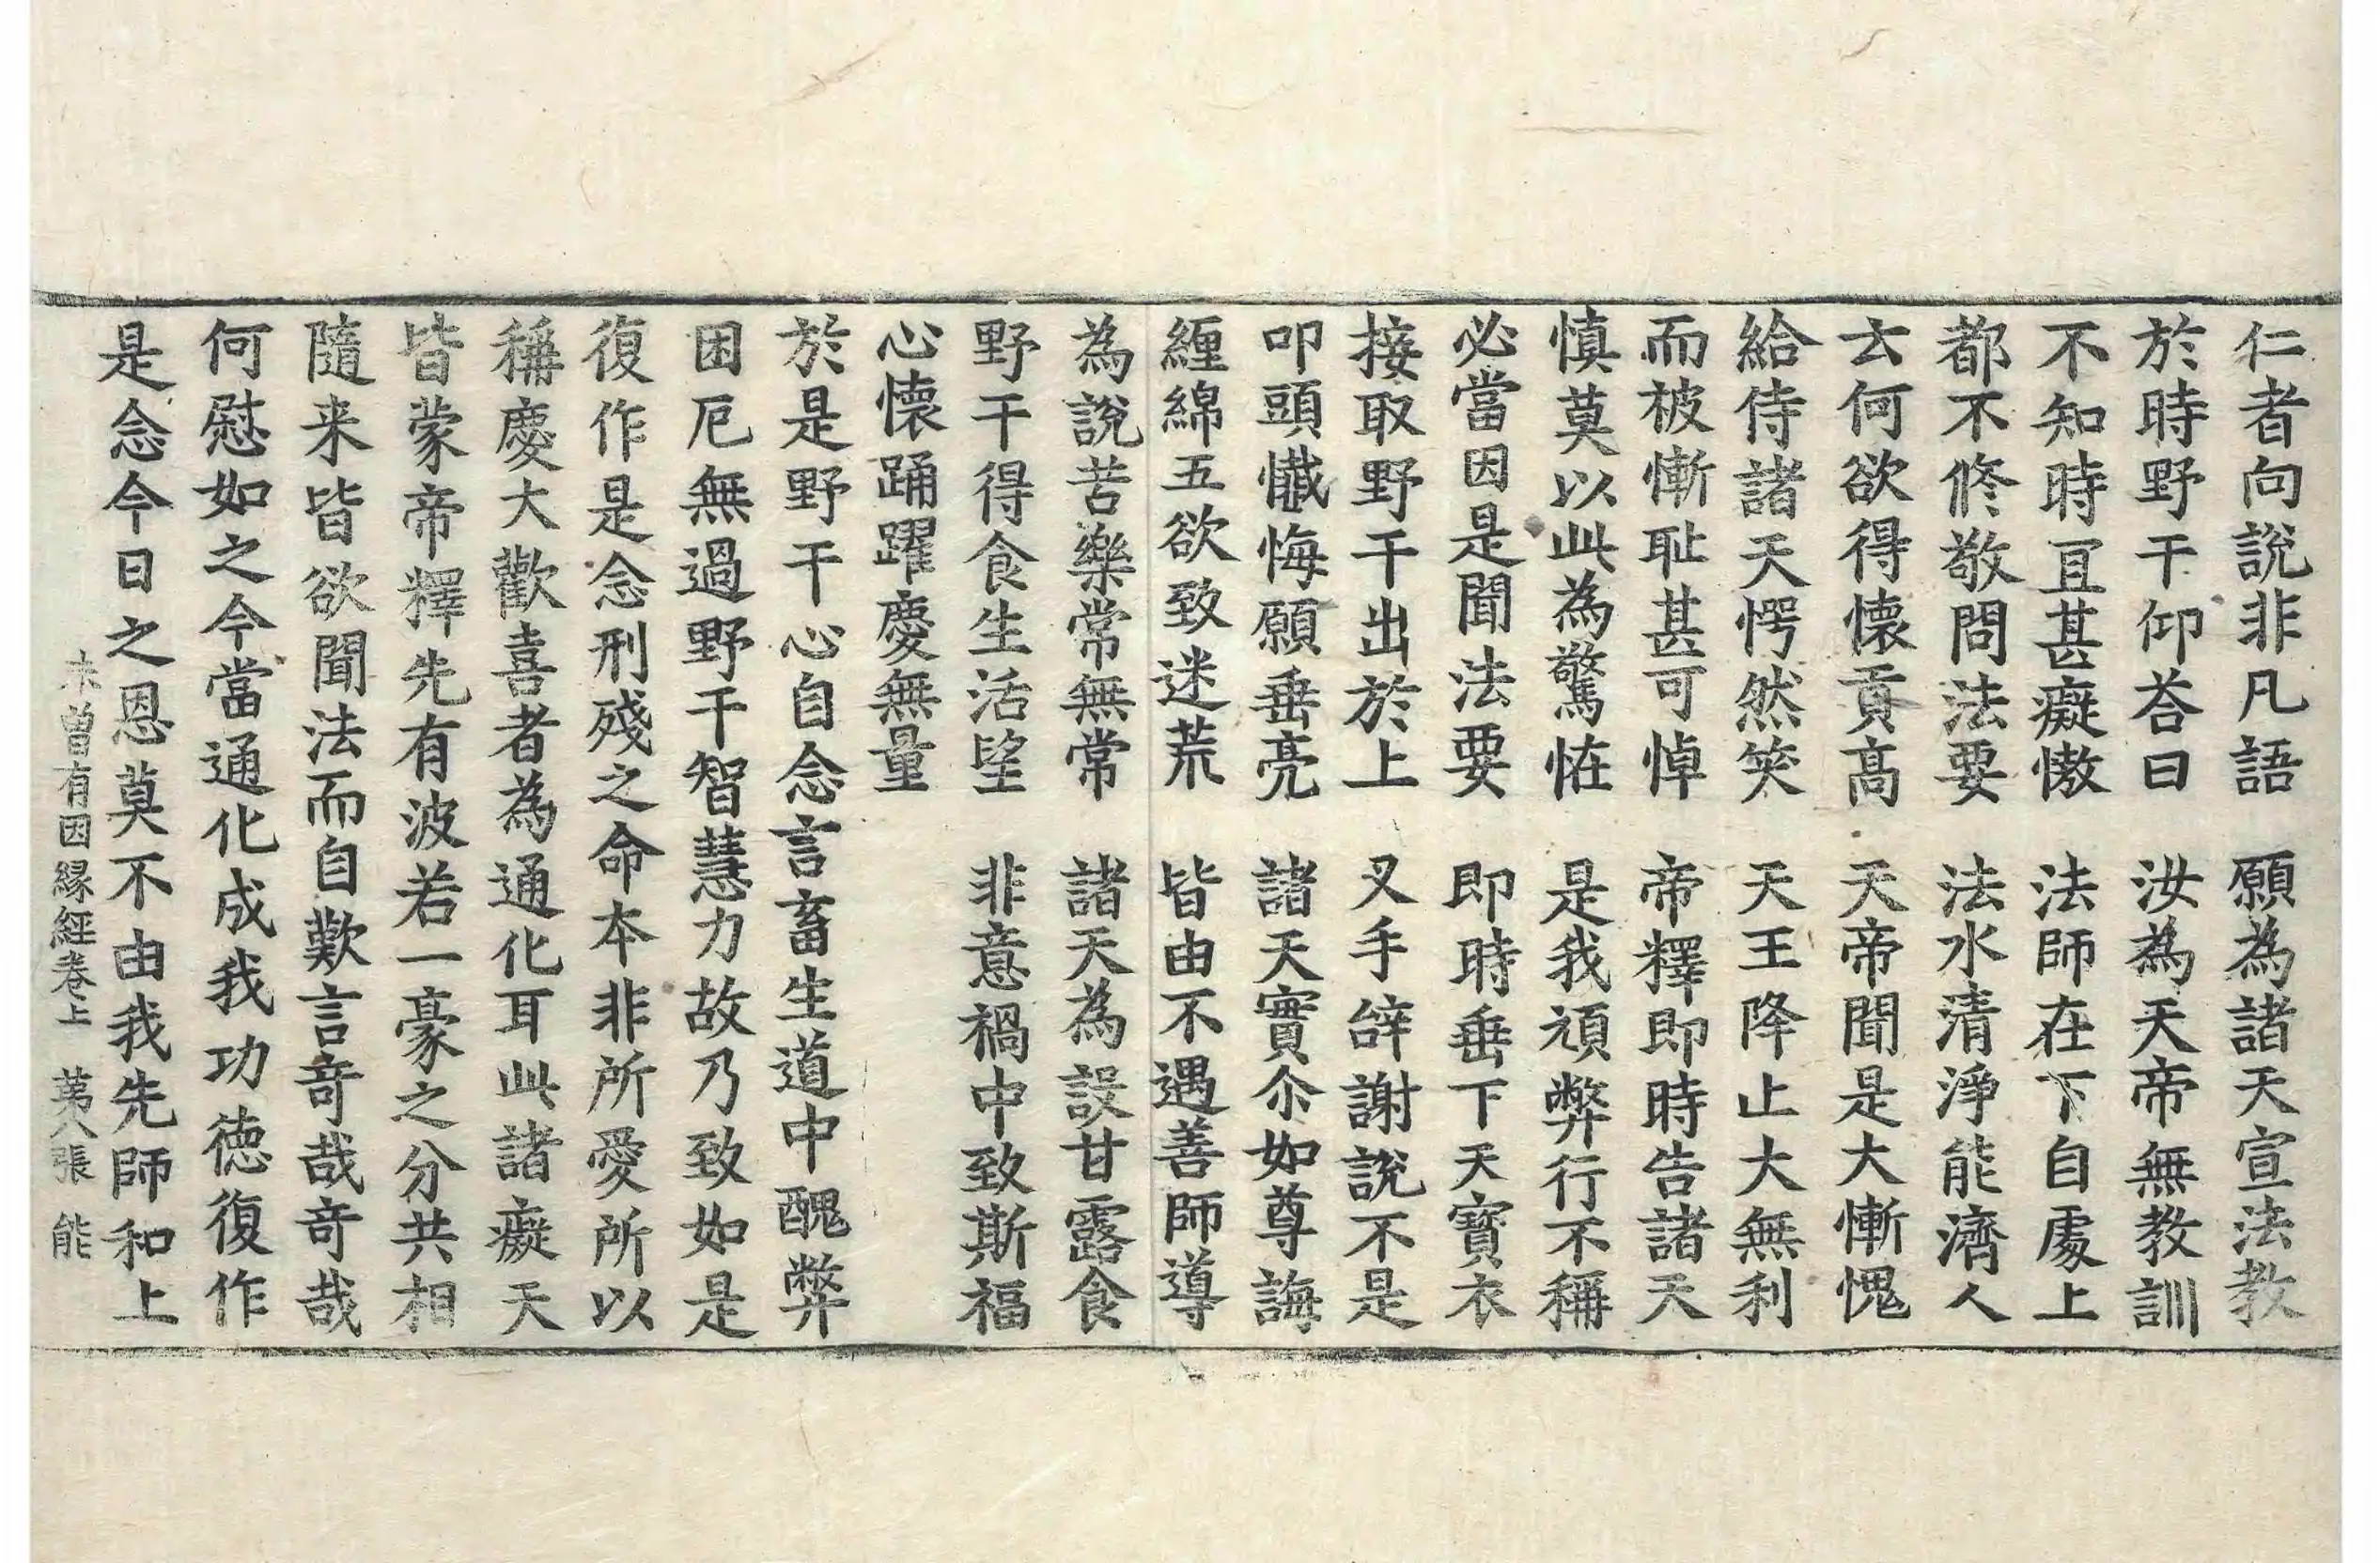 仁者向說非凡語　願為諸天宣法教
於時野干仰荅曰　汝為天帝無教訓
不知時冝甚癡憿　法師在下自處上
都不修敬問法要　法水清淨能濟人
云何欲得懷貢髙　天帝聞是大慚愧
給侍諸天愕然笑　天王降止大無利
而被慚耻甚可悼　帝釋即時告諸天
慎莫以此為驚恠　是我頑弊行不稱
必當因是聞法要　即時垂下天寶衣
接取野干出於上　叉手辝謝說不是
叩頭懺悔願垂亮　諸天實尒如尊誨
纏綿五欲致迷荒　皆由不遇善師導
為說苦樂常無常　諸天為設甘露食
野干得食生活望　非意禍中致斯福
心懷踊躍慶無量
於是野干心自念言畜生道中醜弊
困厄無過野干智慧力故乃致如是
復作是念刑殘之命本非所愛所以
稱慶大歡喜者為通化耳此諸癡天
皆蒙帝釋先有波若一豪之分共相
隨来皆欲聞法而自歎言奇哉奇哉
何慰如之今當通化成我功德復作
是念今日之恩莫不由我先師和上
未曽有因縁經卷上　苐八張　能